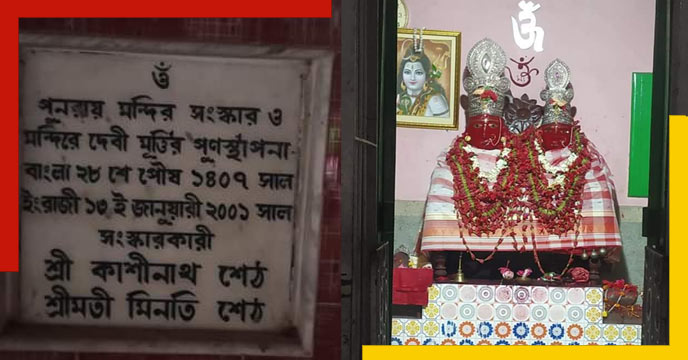 ওঁ
পুনরায় মন্দির সংস্কার ও
মন্দিরে দেবী মূর্ত্তির পুণর্স্থাপনা
বাংলা ২৮ শে পৌষ ১৪০৭ সাল
ইংরাজী ১৩ ই জানুয়ারী ২০০১ সাল
সংস্কারকারী
শ্রী কাশীনাথ শেঠ
শ্রীমতী মিনতি শেঠ
ওঁ
ওঁ